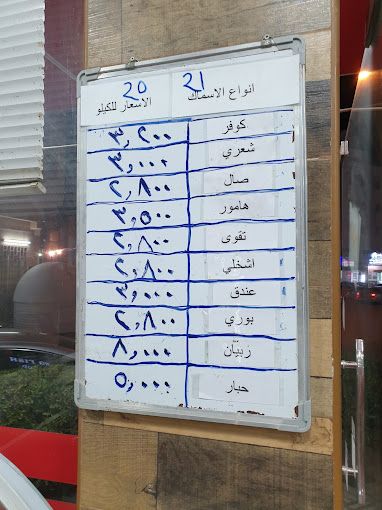 21 20
انواع الاسماك الاسعار للكيلو
كوفر ٣,٢٠٠
شعري ٣,٠٠٠
صال ٢,٨٠٠
هامور ٣,٥٠٠
تقوى ٢,٨٠٠
اشخلي ٢,٨٠٠
عندق ٣,٠٠٠
بوري ٢,٨٠٠
ربيان ٨,٠٠٠
حبار ٥,٠٠٠